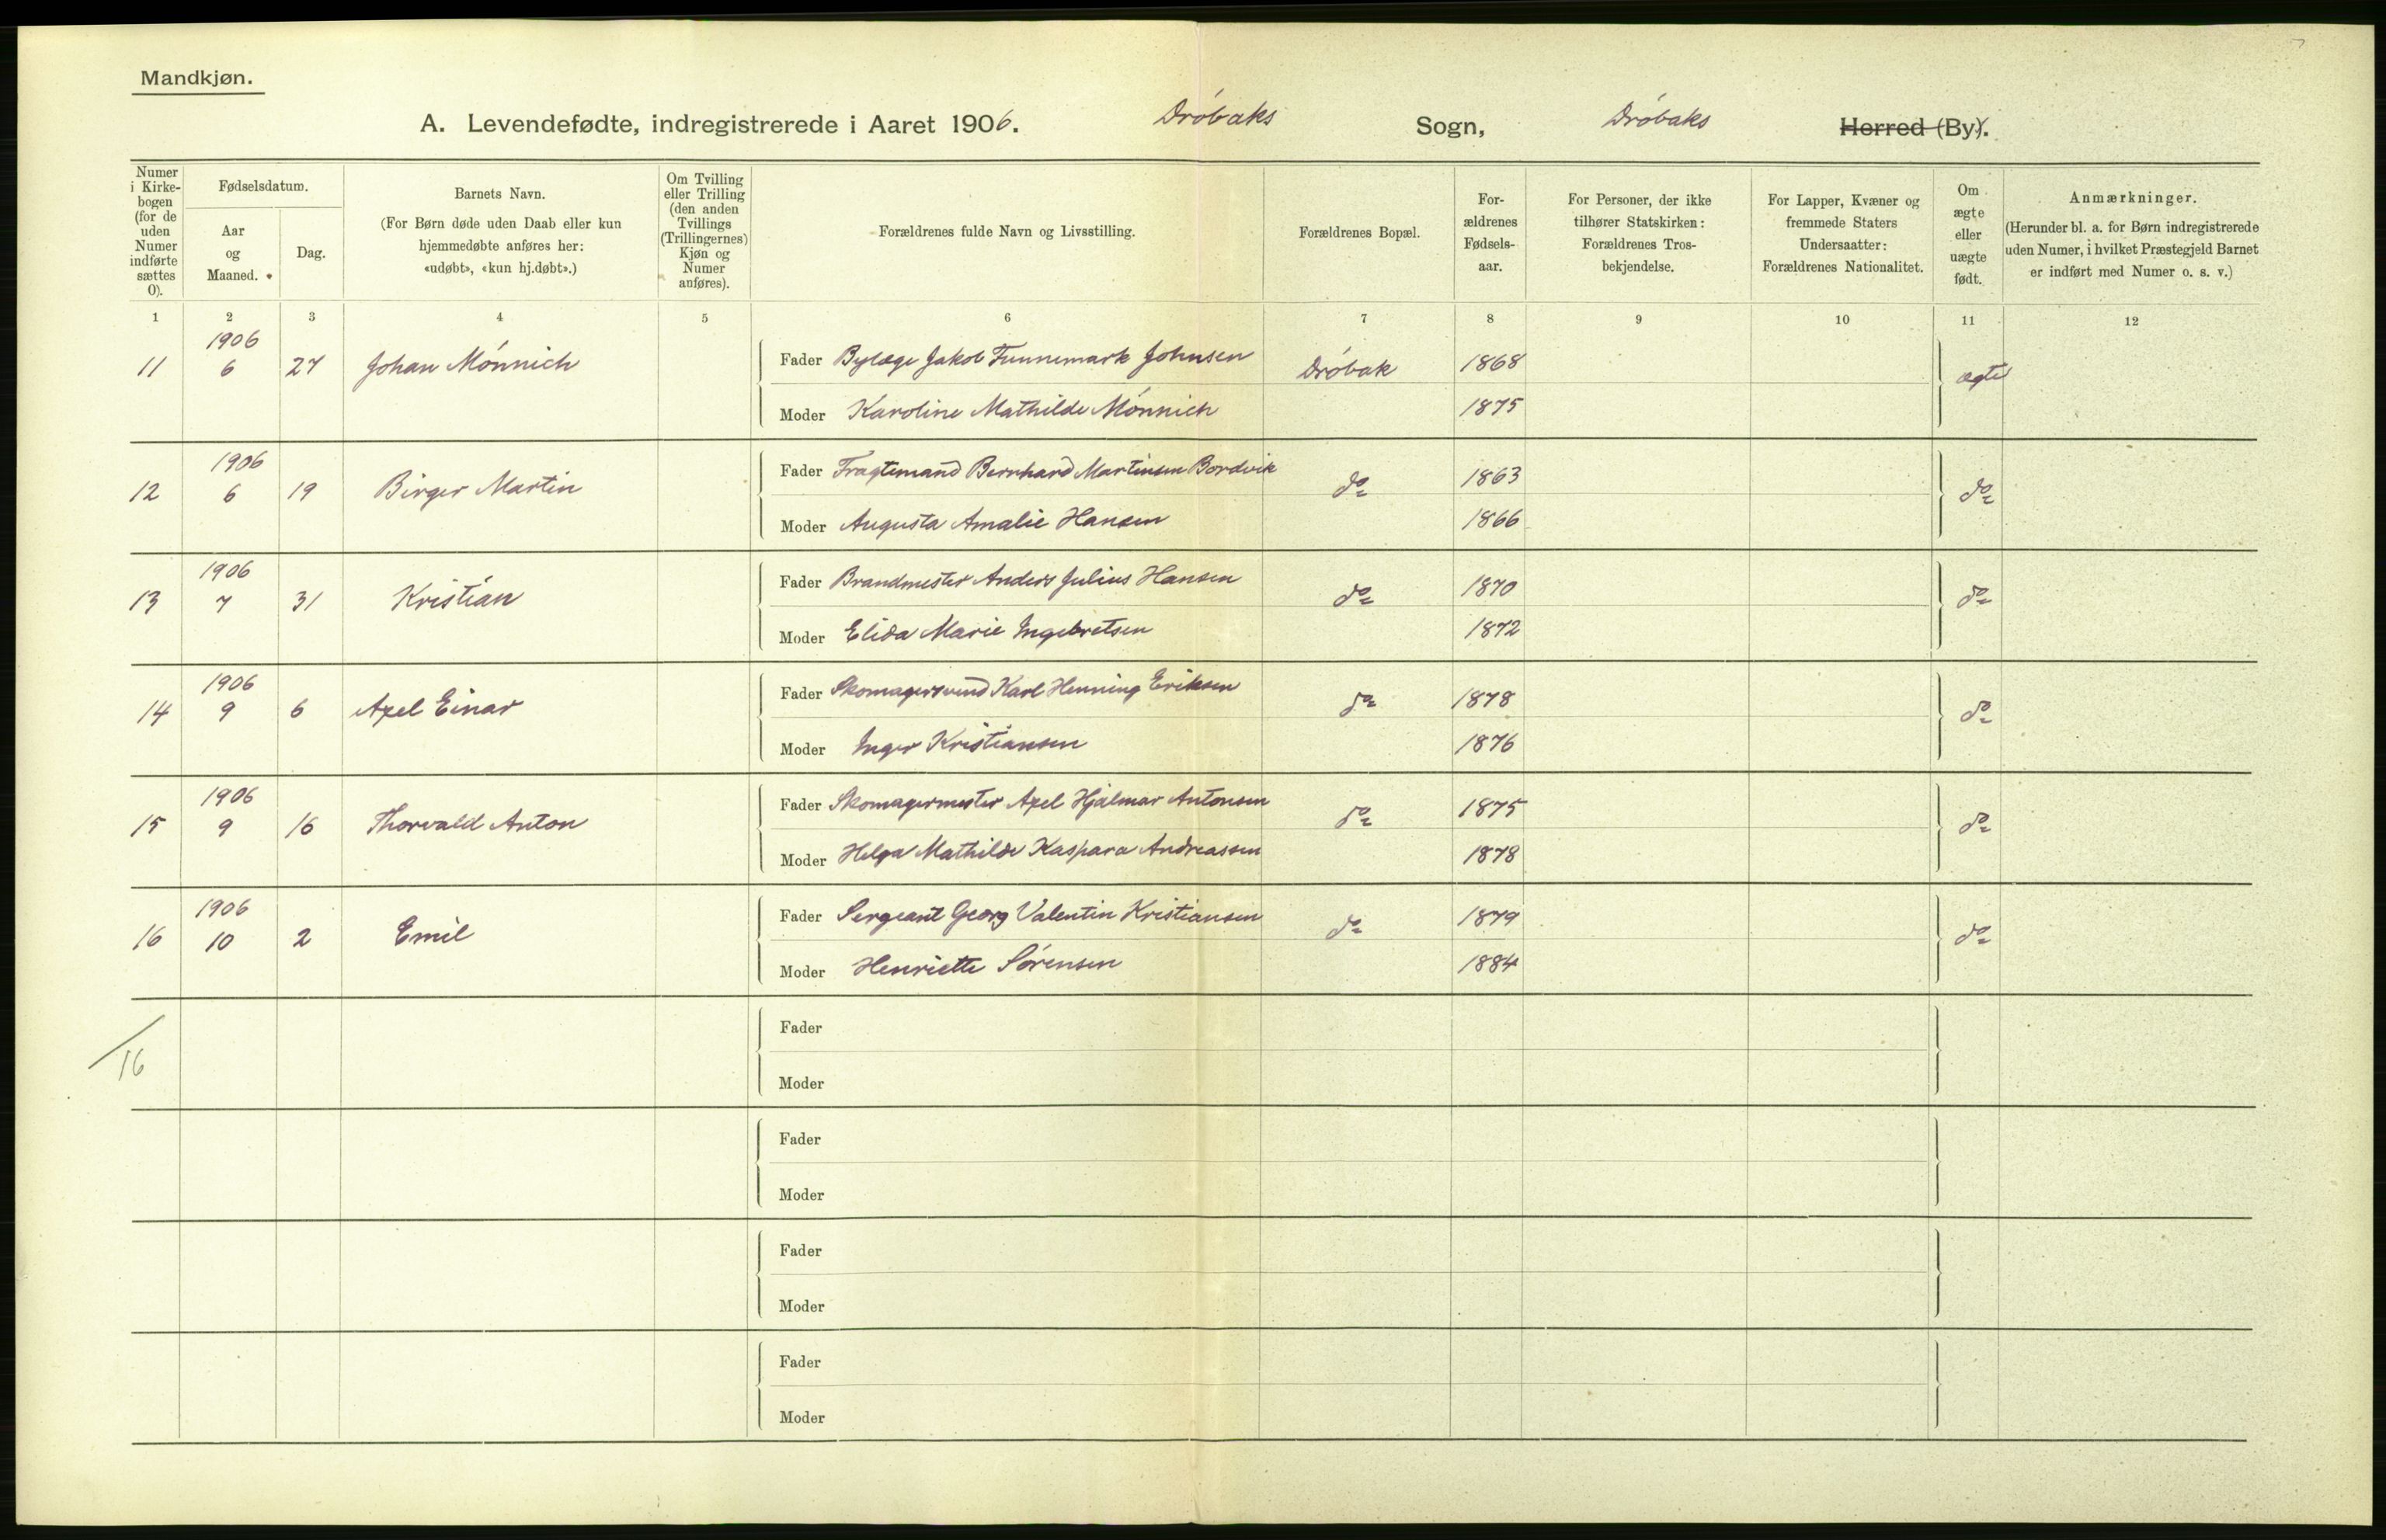 Mandkjøn.
A. Levendefødte, indregistrerede i Aaret 1906. Drøbaks Sogn, Drøbaks Herred (By).
Numer i Kirkebogen (for de uden Numer indførte sættes 0).
Fødselsdatum.
Aar og Maaned.
Dag.
Barnets Navn.
(For Børn døde uden Daab eller kun hjemmedøbte anføres her: «udøbt», «kun hj.døbt».)
Om Tvilling eller Trilling (den anden Tvillings (Trillingernes) Kjøn og Numer anføres).
Forældrenes fulde Navn og Livsstilling.
Forældrenes Bopæl.
Forældrenes Fødselsaar.
For Personer, der ikke tilhører Statskirken: Forældrenes Trosbekjendelse.
For Lapper, Kvæner og fremmede Staters Undersaatter: Forældrenes Nationalitet.
Om ægte eller uægte født.
Anmærkninger.
(Herunder bl. a. for Børn indregistrerede uden Numer, i hvilket Præstegjeld Barnet er indført med Numer o. s. v.)
1 2 3 4 5 6 7 8 9 10 11 12
11 1906 6 27 Johan Mönnich Fader Bylæge Jakob Johnsen Drøbak 1868 ægte
Moder Karoline Mathilde Mönnich 1875
12 1906 6 19 Birger Martin Fader Fragtemand Bernhard Martinsen Bordvik do 1863 do
Moder Augusta Amalie Hansen 1866
13 1906 7 31 Kristian Fader Brandmester Anders Julius Hansen do 1870 do
Moder Elida Marie Ingebretsen 1872
14 1906 9 6 Axel Einar Fader Skomagersvend Karl Henning Eriksen do 1878 do
Moder Inger Kristiansen 1876
15 1906 9 16 Thorvald Anton Fader Skomagermester Axel Hjalmar Antonsen do 1875 do
Moder Helga Mathilde Kaspara Andreassen 1878
16 1906 10 2 Emil Fader Sergeant Georg Valentin Kristiansen do 1879 do
Moder Henriette Sørensen 1884
Fader
16
Moder
Fader
Moder
Fader
Moder
Fader
Moder